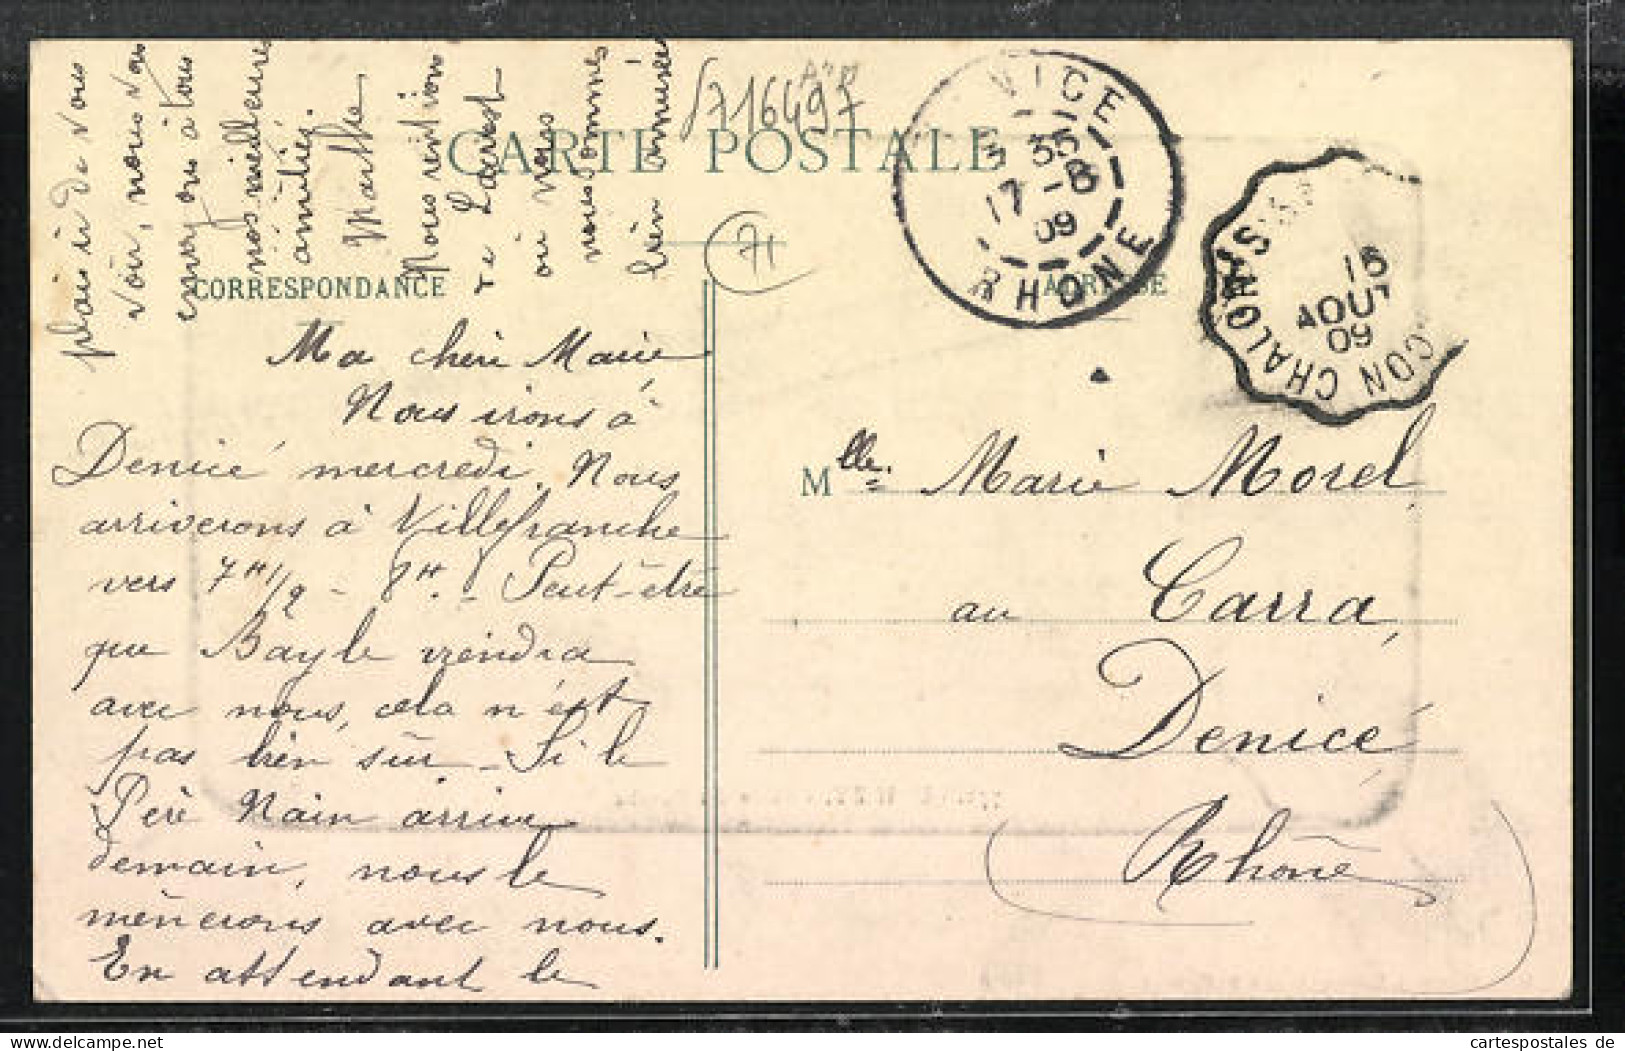 CARTE POSTALE
CORRESPONDANCE
Ma chère Marie
Nous irons à
Denicé mercredi. Nous
arriverons à Villefranche
vers 7H 1/2 - 8H. - Peut-être
que Bayle viendra
avec nous, cela n'est
pas bien sûr - Si le
Père Nain arrive
demain, nous le
mènerons avec nous.
En attendant le
plaisir de vous
voir, nous vous
envoyons à tous
nos meilleures
amitiés.
Marthe
Nous
de
où nous
nous sommes
bien amusées
716497
71
NICE
3 35
17-8
09
RHONE
CON CHALON S
16
AOUT
09
Mlle. Marie Morel,
au Carra,
Denicé
Rhône
cartespostales de